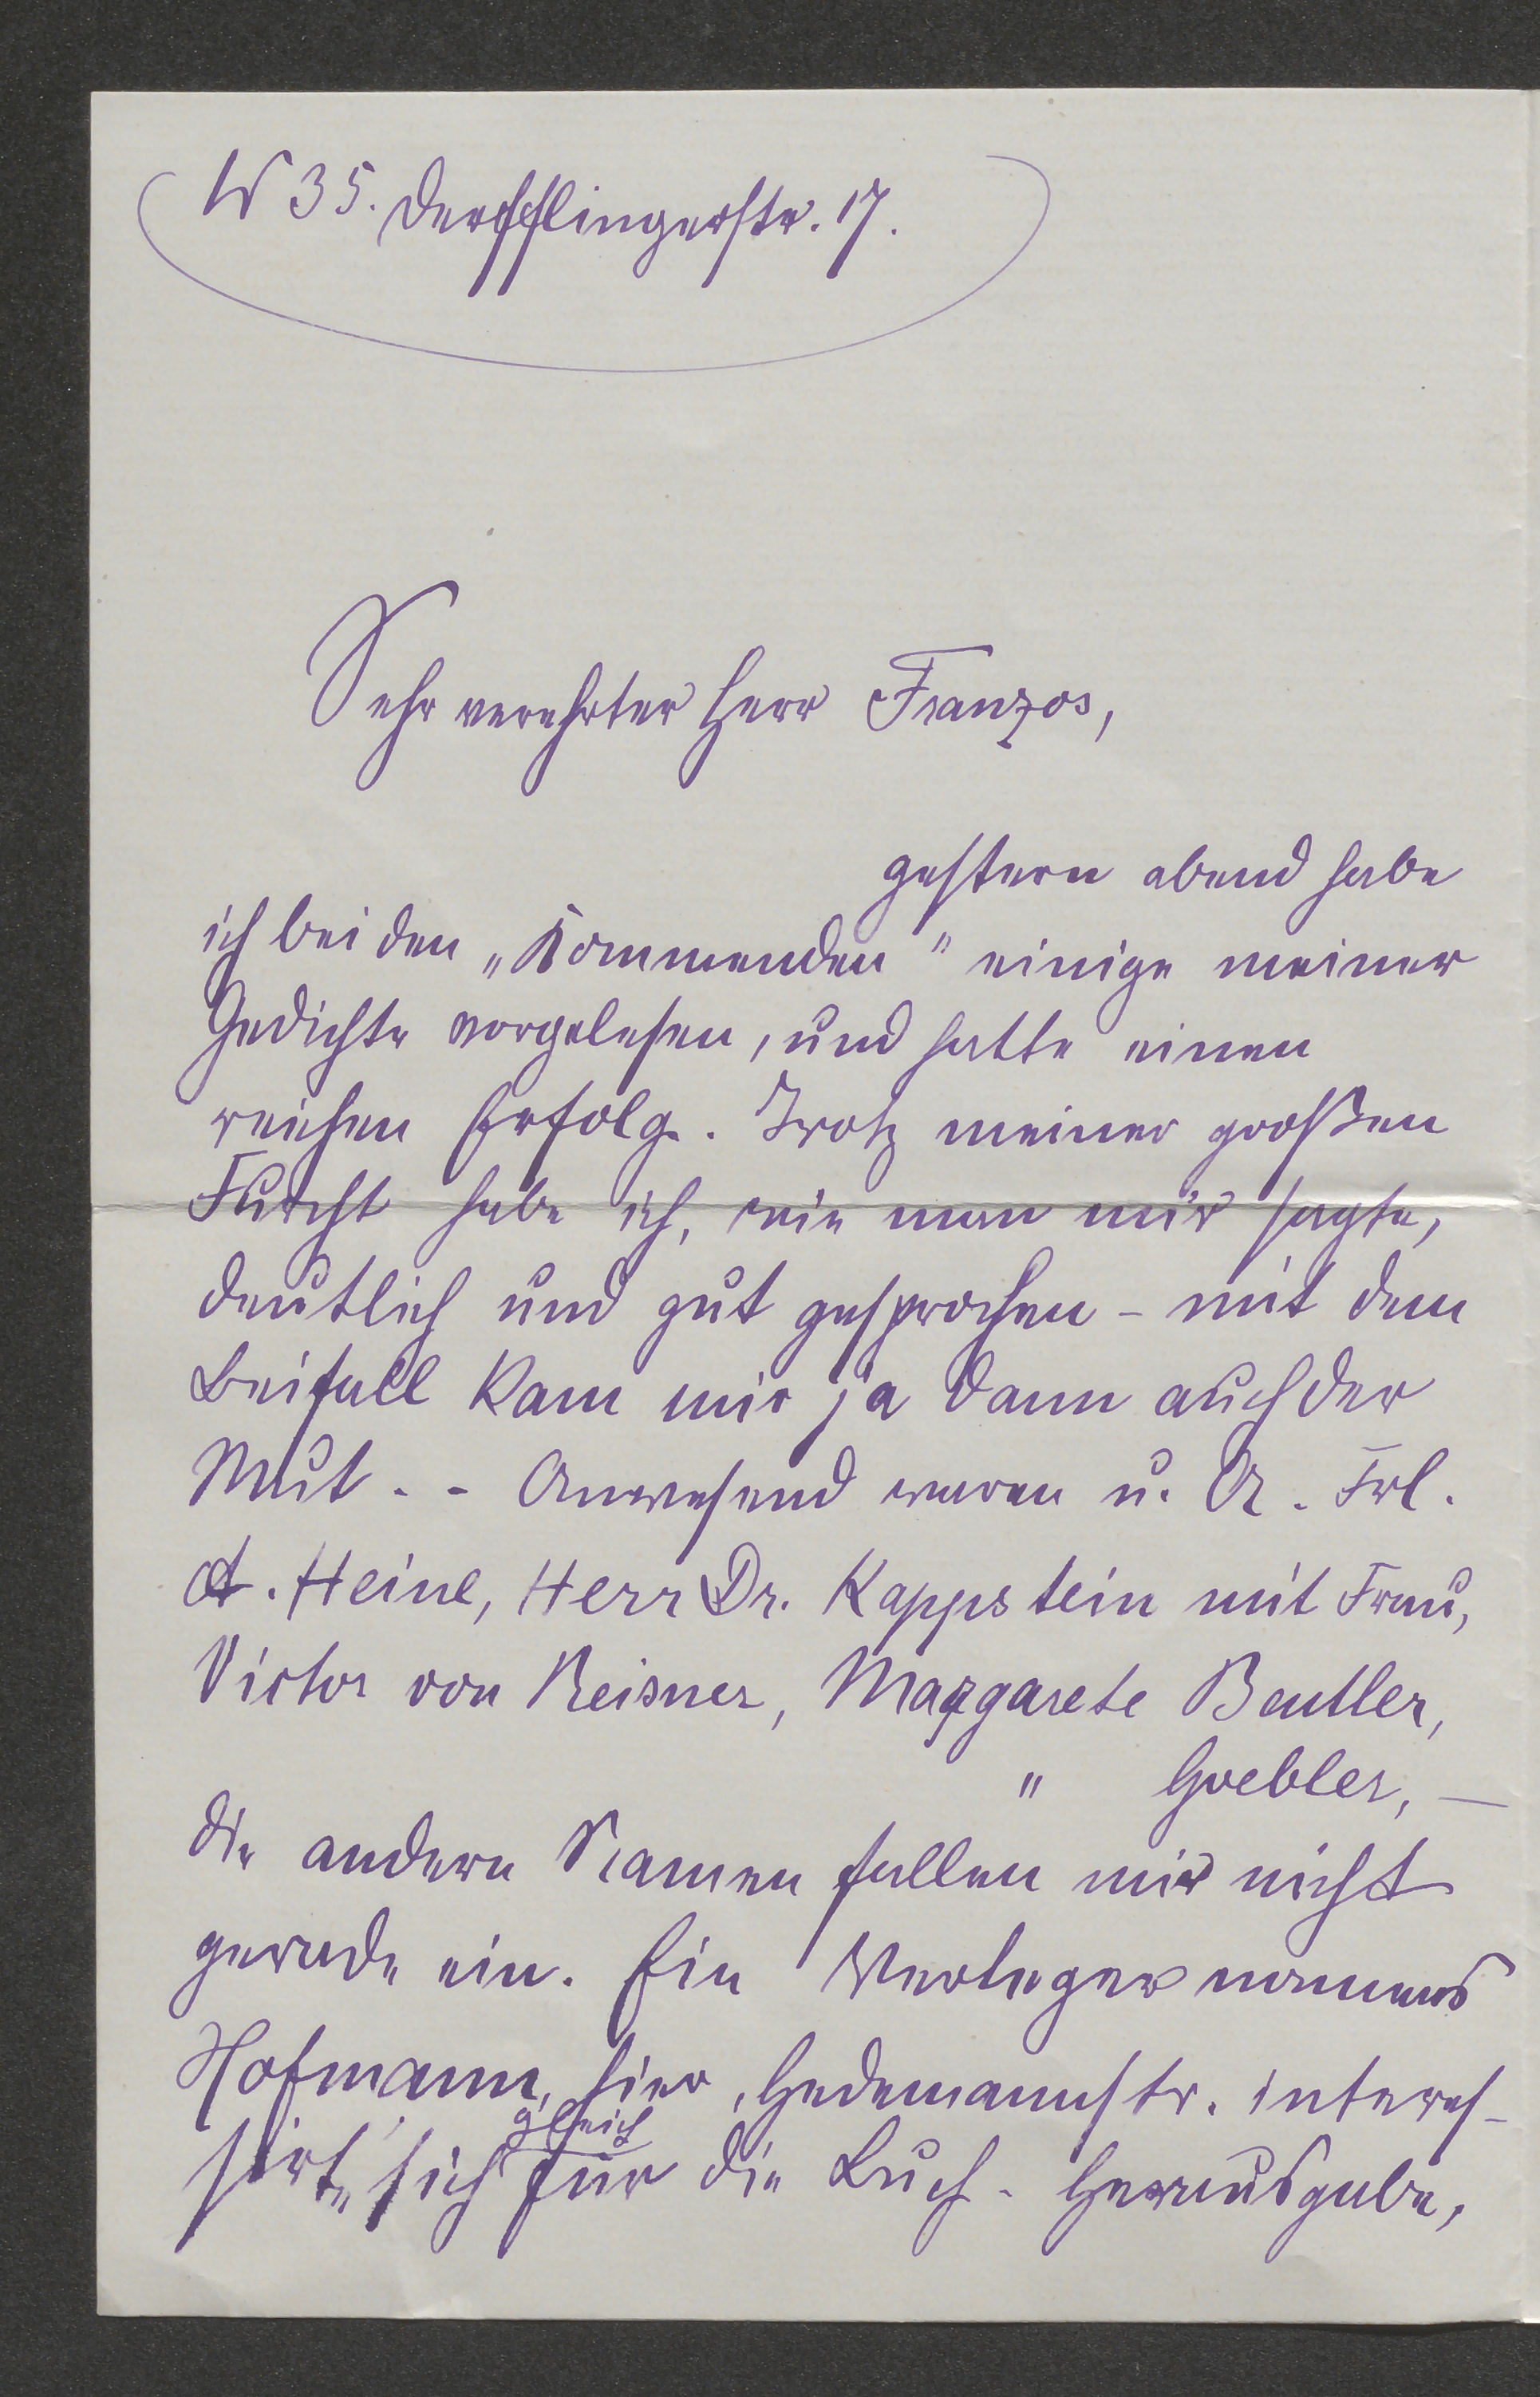 W 35. Derfflingerstr. 17.
Sehr verehrter Herr Franzos,
gestern abend habe
ich bei den „Kommenden" einige meiner
Gedichte vorgelesen, und hatte einen
reichen Erfolg. Trotz meiner großen
Furcht habe ich, wie man mir sagte,
deutlich und gut gesprochen - mit dem
Beifall kam mir ja dann auch der
Mut. - Anwesend waren u. A. Frl.
A. Heine, Herr Dr. Kappstein mit Frau,
Victor von Reisner, Margarete Beutler,
" Goebler, —
die andern Namen fallen mir nicht
gerade ein. Ein Verleger namens
Hofmann, hier, Hedemannstr. interes-
gleich
sirte sich für die Buch-Herausgabe,